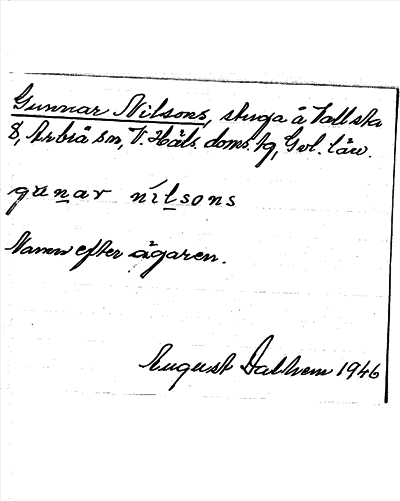 Gunnar Nilsons, stuga å Vallsta
8, Arbrå sn, V. Häls. doms. hg, Gvl. län.
gunar nílsons
Namn efter ägaren.
August Dalhem 1946